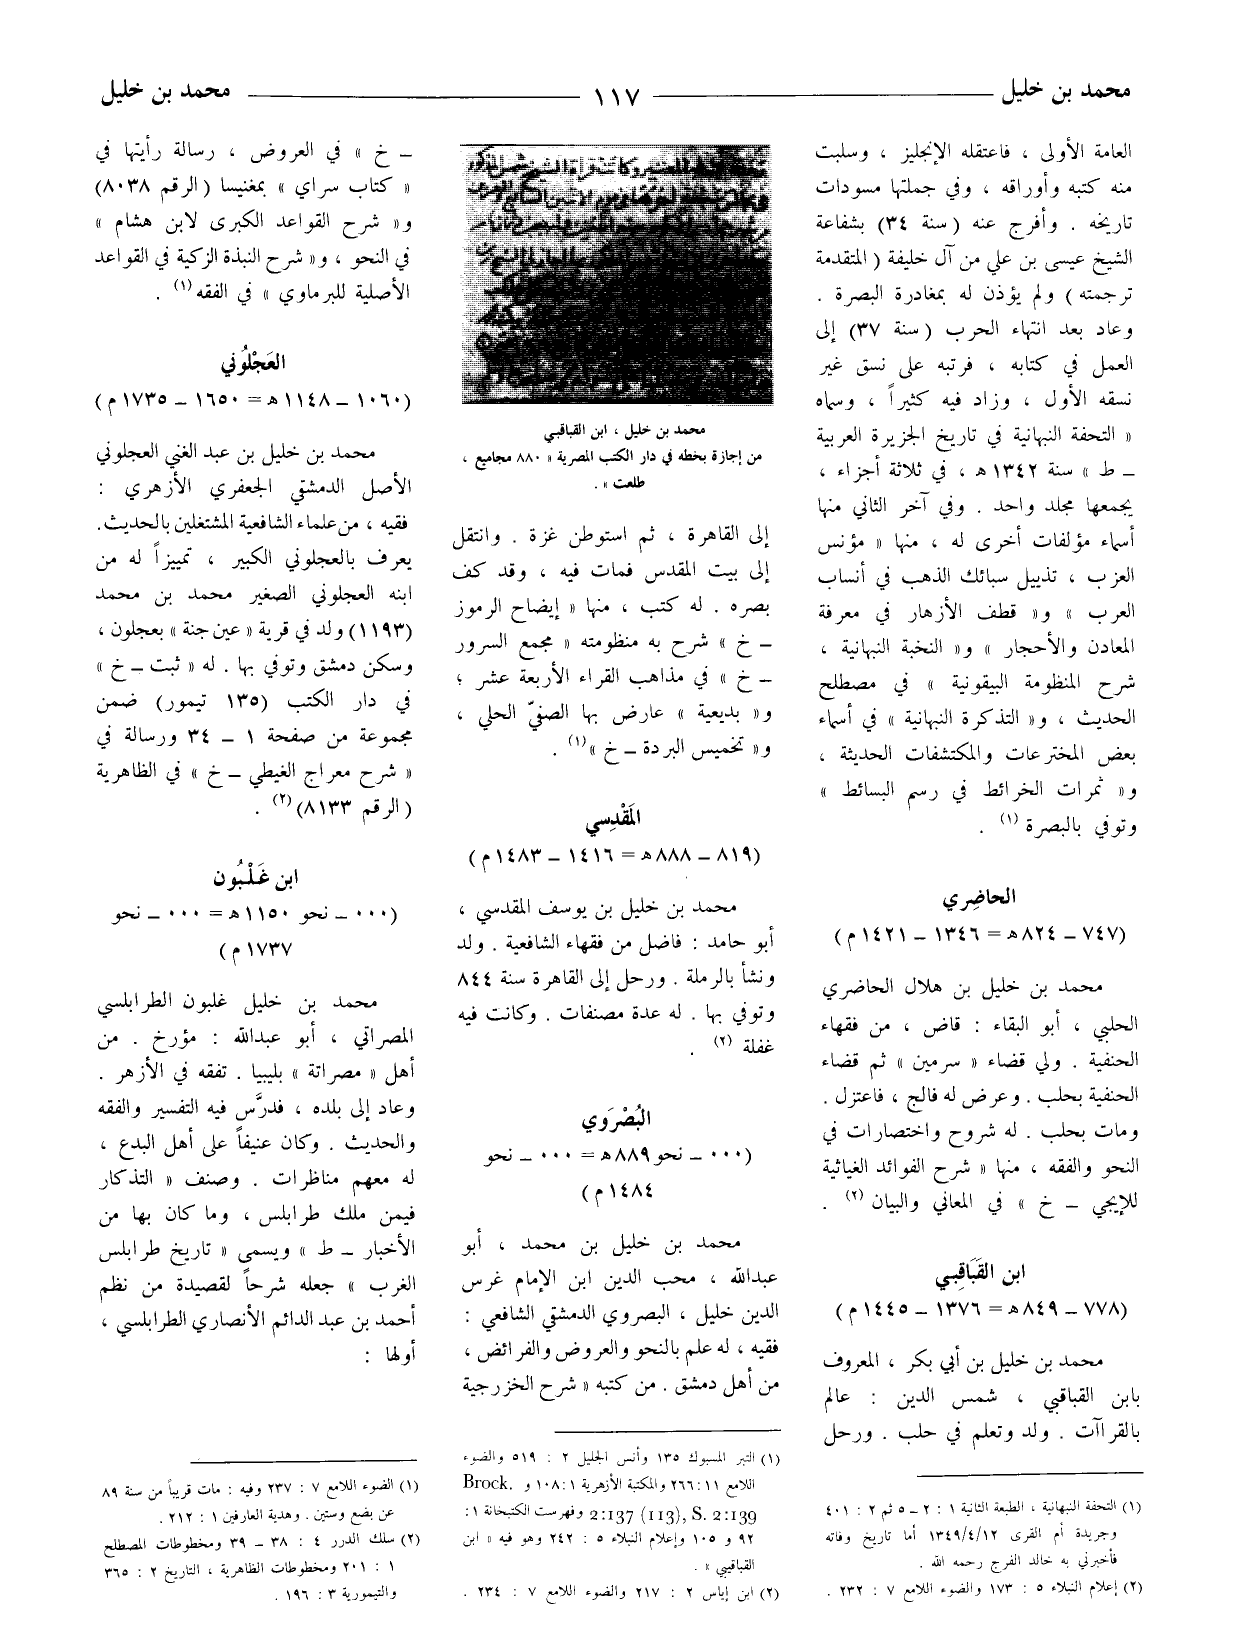 محمد بن خليل ١١٧ محمد بن خليل
العامة الأولى ، فاعتقله الإنجليز ، وسلبت
منه كتبه وأوراقه ، وفي جملتها مسودات
تاريخه . وأفرج عنه (سنة ٣٤) بشفاعة
الشيخ عيسى بن علي من آل خليفة ( المتقدمة
ترجمته ) ولم يؤذن له بمغادرة البصرة .
وعاد بعد انتهاء الحرب (سنة ٣٧) إلى
العمل في كتابه ، فرتبه على نسق غير
نسقه الأول ، وزاد فيه كثيراً ، وسماه
« التحفة النبهانية في تاريخ الجزيرة العربية
ـ ط » سنة ١٣٤٢ ه ، في ثلاثة أجزاء ،
يجمعها مجلد واحد . وفي آخر الثاني منها
أسماء مؤلفات أخرى له ، منها « مؤنس
العزب ، تذييل سبائك الذهب في أنساب
العرب » و« قطف الأزهار في معرفة
المعادن والأحجار » و« النخبة النبهانية ،
شرح المنظومة البيقونية » في مصطلح
الحديث ، و« التذكرة النبهانية » في أسماء
بعض المخترعات والمكتشفات الحديثة ،
و« ثمرات الخرائط في رسم البسائط »
وتوفي بالبصرة (١) .
الحاضِري
(٧٤٧ ـ ٨٢٤ ه = ١٣٤٦ ـ ١٤٢١ م )
محمد بن خليل بن هلال الحاضري
الحلبي ، أبو البقاء : قاض ، من فقهاء
الحنفية . ولي قضاء « سرمين » ثم قضاء
الحنفية بحلب . وعرض له فالج ، فاعتزل .
ومات بحلب . له شروح واختصارات في
النحو والفقه ، منها « شرح الفوائد الغياثية
للإيجي ـ خ » في المعاني والبيان (٢) .
ابن القَبَاقِبي
(٧٧٨ ـ ٨٤٩ ه = ١٣٧٦ ـ ١٤٤٥ م )
محمد بن خليل بن أبي بكر ، المعروف
بابن القباقبي ، شمس الدين : عالم
بالقراآت . ولد وتعلم في حلب . ورحل
(١) التحفة النبهانية ، الطبعة الثانية ١ : ٢ ـ ٥ ثم ٢ : ٤٠١
وجريدة أم القرى ١٣٤٩/٤/١٢ أما تاريخ وفاته
فأخبرني به خالد الفرج رحمه الله .
(٢) إعلام النبلاء ٥ : ١٧٣ والضوء اللامع ٧ : ٢٣٢ .
محمد بن خليل ، ابن القباقبي
من إجازة بخطه في دار الكتب المصرية « ٨٨٠ مجاميع ،
طلعت » .
إلى القاهرة ، ثم استوطن غزة . وانتقل
إلى بيت المقدس فمات فيه ، وقد كف
بصره . له كتب ، منها « إيضاح الرموز
ـ خ » شرح به منظومته « مجمع السرور
ـ خ » في مذاهب القراء الأربعة عشر ؛
و« بديعية » عارض بها الصفيّ الحلي ،
و« تخميس البردة ـ خ »(١) .
المَقْدِسي
(٨١٩ ـ ٨٨٨ ه = ١٤١٦ ـ ١٤٨٣ م )
محمد بن خليل بن يوسف المقدسي ،
أبو حامد : فاضل من فقهاء الشافعية . ولد
ونشأ بالرملة . ورحل إلى القاهرة سنة ٨٤٤
وتوفي بها . له عدة مصنفات . وكانت فيه
غفلة (٢) .
البُصْرَوي
(٠٠٠ ـ نحو ٨٨٩ ه = ٠٠٠ ـ نحو
١٤٨٤ م )
محمد بن خليل بن محمد ، أبو
عبدالله ، محب الدين ابن الإمام غرس
الدين خليل ، البصروي الدمشقي الشافعي :
فقيه ، له علم بالنحو والعروض والفرائض ،
من أهل دمشق . من كتبه « شرح الخزرجية
(١) التبر المسبوك ١٣٥ وأنس الجليل ٢ : ٥١٩ والضوء
اللامع ١١: ٢٦٦ والمكتبة الأزهرية ١: ١٠٨ و Brock.
2:137 (113), S. 2:139 وفهرست الكتبخانة ١ :
٩٢ و ١٠٥ وإعلام النبلاء ٥ : ٢٤٢ وهو فيه « ابن
القباقيبي » .
(٢) ابن إياس ٢ : ٢١٧ والضوء اللامع ٧ : ٢٣٤ .
ـ خ » في العروض ، رسالة رأيتها في
« كتاب سراي » بمغنيسا ( الرقم ٨٠٣٨)
و« شرح القواعد الكبرى لابن هشام »
في النحو ، و« شرح النبذة الزكية في القواعد
الأصلية للبرماوي » في الفقه (١) .
العَجْلُوني
(١٠٦٠ ـ ١١٤٨ ه = ١٦٥٠ ـ ١٧٣٥ م )
محمد بن خليل بن عبد الغني العجلوني
الأصل الدمشقي الجعفري الأزهري :
فقيه ، من علماء الشافعية المشتغلين بالحديث .
يعرف بالعجلوني الكبير ، تمييزاً له من
ابنه العجلوني الصغير محمد بن محمد
(١١٩٣) ولد في قرية « عين جنة » بعجلون ،
وسكن دمشق وتوفي بها . له « ثبت ـ خ »
في دار الكتب (١٣٥ تيمور) ضمن
مجموعة من صفحة ١ ـ ٣٤ ورسالة في
« شرح معراج الغيطي ـ خ » في الظاهرية
( الرقم ٨١٣٣)(٢) .
ابن غَلْبُون
(٠٠٠ ـ نحو ١١٥٠ ه = ٠٠٠ ـ نحو
١٧٣٧ م )
محمد بن خليل غلبون الطرابلسي
المصراتي ، أبو عبدالله : مؤرخ . من
أهل « مصراتة » بليبيا . تفقه في الأزهر .
وعاد إلى بلده ، فدرَّس فيه التفسير والفقه
والحديث . وكان عنيفاً على أهل البدع ،
له معهم مناظرات . وصنف « التذكار
فيمن ملك طرابلس ، وما كان بها من
الأخبار ـ ط » ويسمى « تاريخ طرابلس
الغرب » جعله شرحاً لقصيدة من نظم
أحمد بن عبد الدائم الأنصاري الطرابلسي ،
أولها :
(١) الضوء اللامع ٧ : ٢٣٧ وفيه : مات قريباً من سنة ٨٩
عن بضع وستين . وهدية العارفين ١ : ٢١٢ .
(٢) سلك الدرر ٤ : ٣٨ ـ ٣٩ ومخطوطات المصطلح
١ : ٢٠١ ومخطوطات الظاهرية ، التاريخ ٢ : ٣٦٥
والتيمورية ٣ : ١٩٦ .